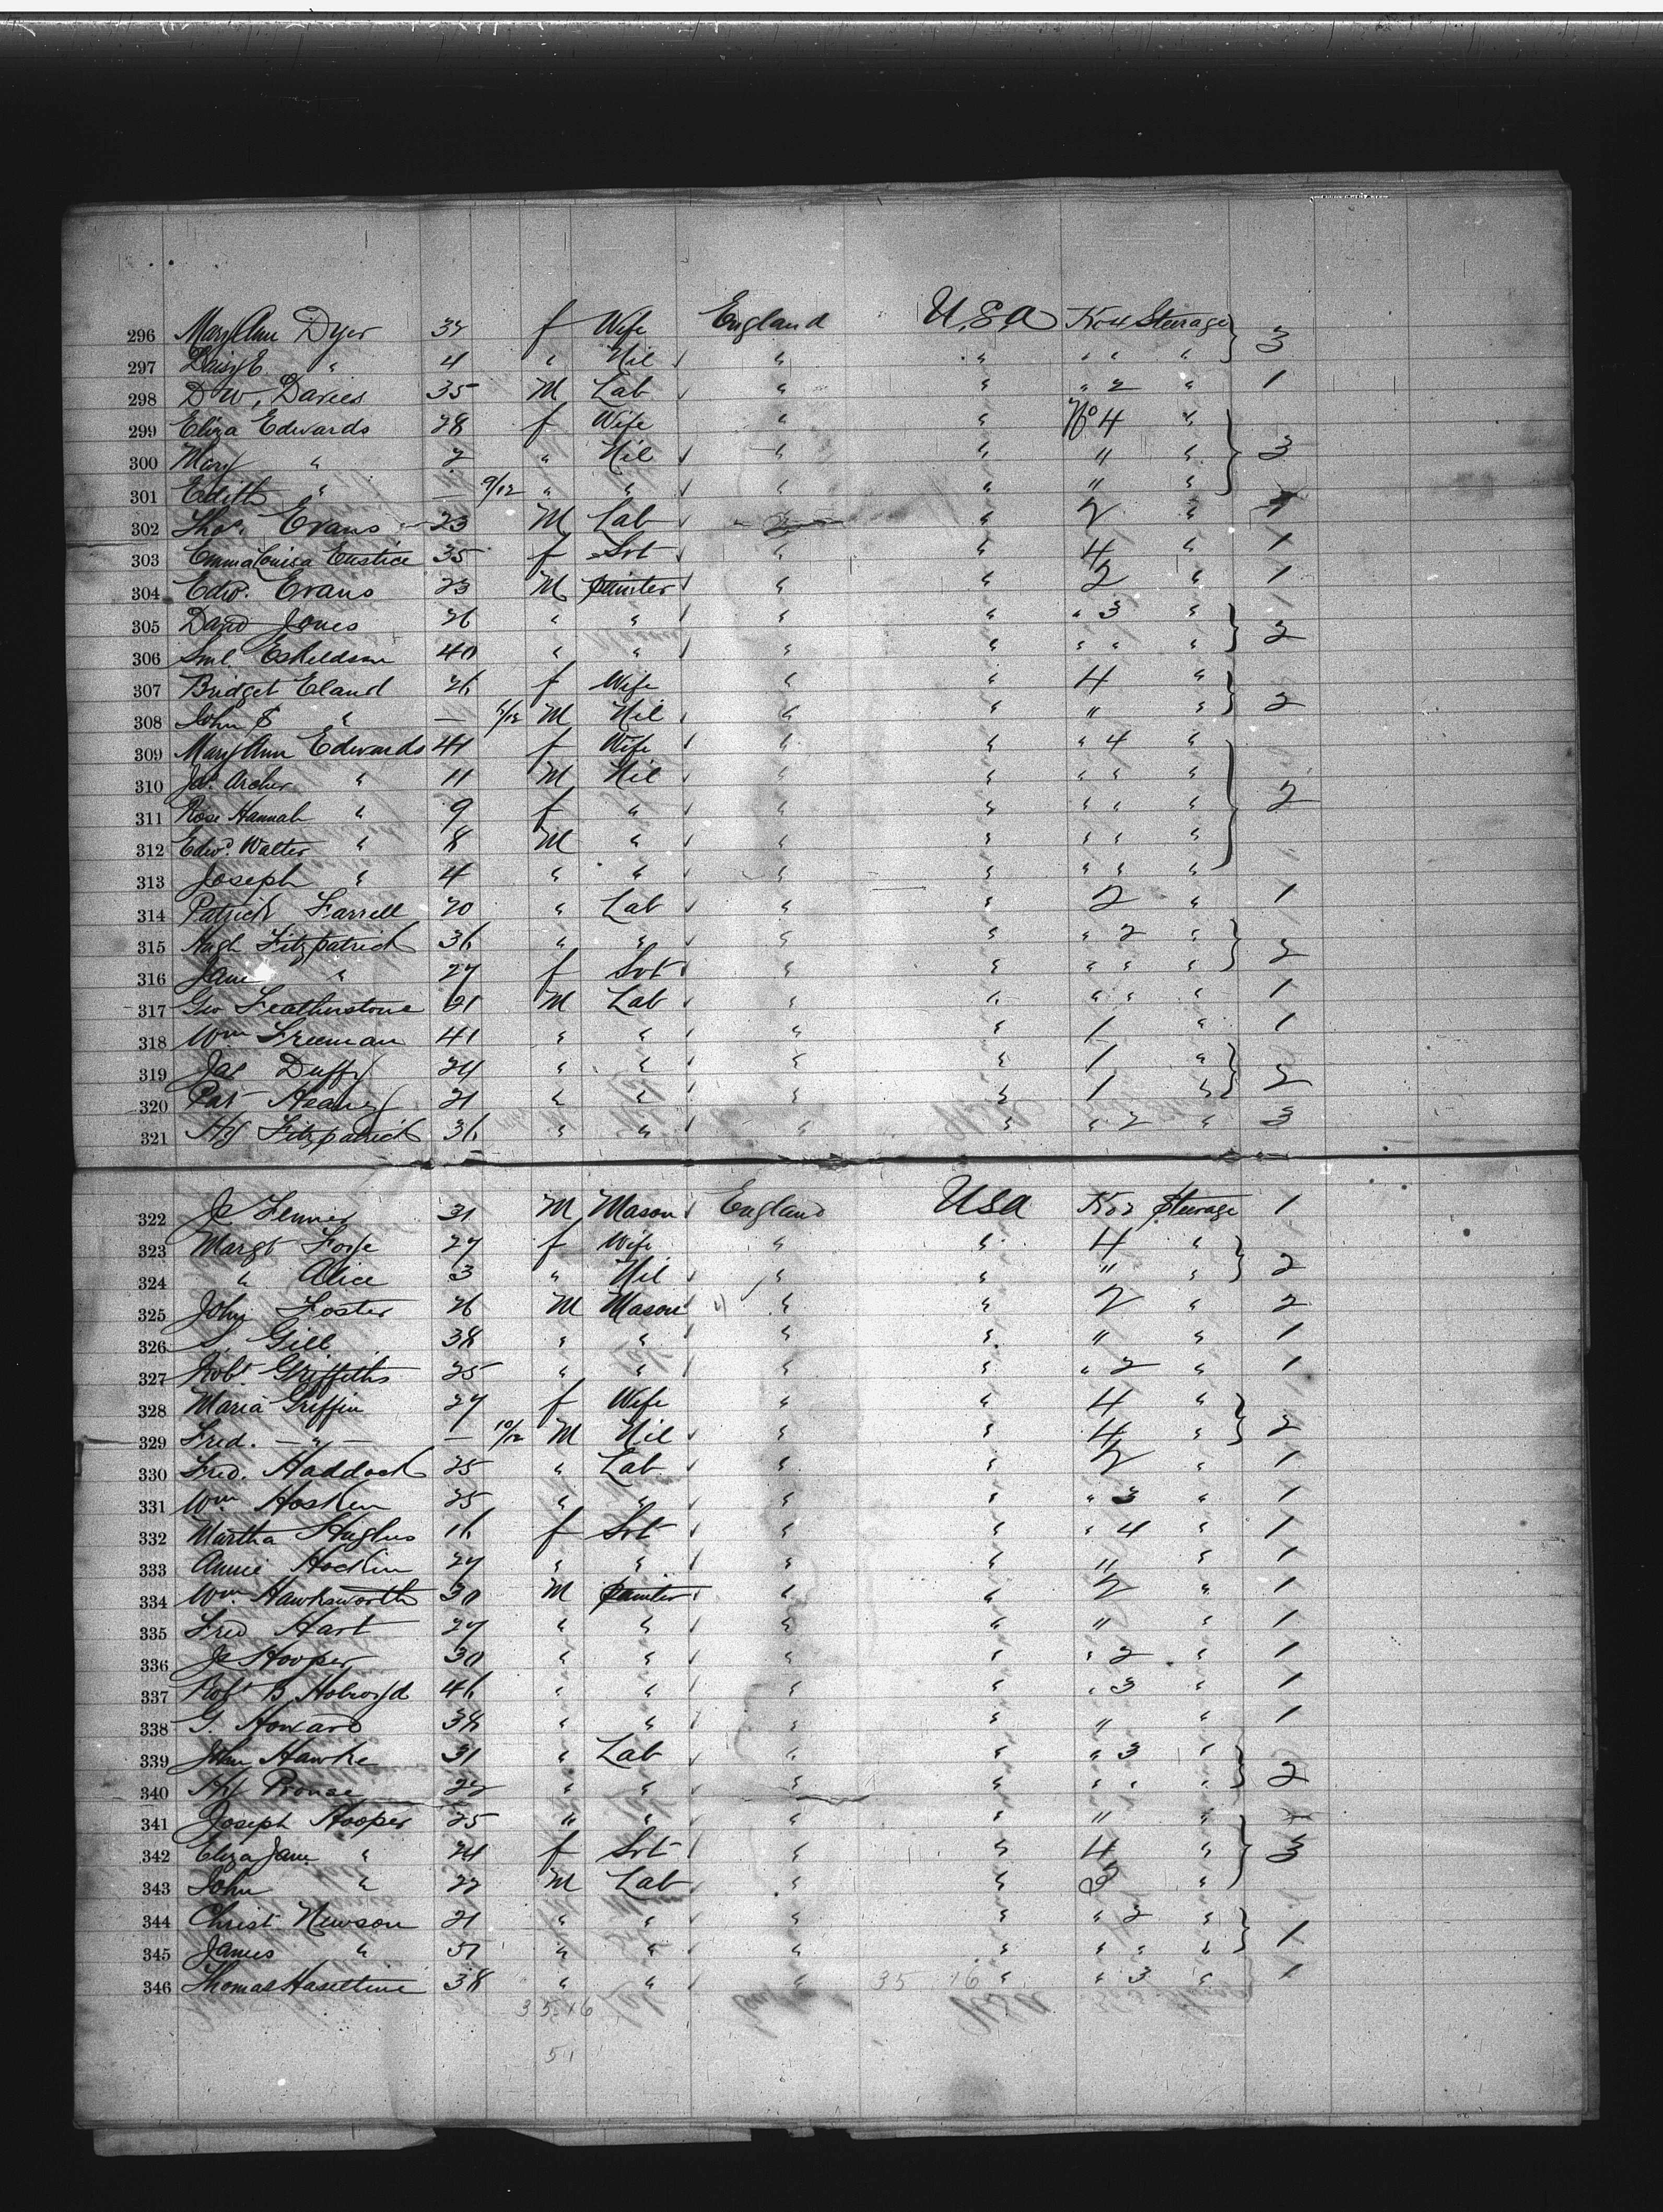 296 Mary Ann Dyer 32 f Wife England U.S.A No 4 Steerage } 3
297 Daisy E. " 4 " Nil " " " " "
298 D W, Davies 35 M Lab " " " 2 " 1
299 Eliza Edwards 28 f Wife " " No 4 "
300 Mary " 2 " Nil " " " " } 3
301 Edith " — 9/12 " " " " " "
302 Thos. Evans 23 M Lab " " 2 "
303 Emma Louisa Eustice 35 f Svt " " 4 " 1
304 Edw. Evans 23 M Painter " " 2 " 1
305 David Jones 26 " " " " " 3 " } 2
306 Saml. Eskeldson 40 " " " " " " "
307 Bridget Eland 26 f Wife " " 4 " } 2
308 John S " — M Nil " " " "
309 Mary Ann Edwards 41 f Wife " " " 4 "
310 Jas. Archer " 11 M Nil " " " " "
311 Rose Hannah " 9 f " " " " " " } 2
312 Edwd. Walter " 8 M " " " " " "
313 Joseph " 4 " " " " " " "
314 Patrick Farrell 20 " Lab " " 2 " 1
315 Hugh Fitzpatrick 36 " " " " " 2 " } 2
316 Jane " 27 f Svt " " " " "
317 Geo Featherstone 21 M Lab " " " " " 1
318 Wm Freeman 41 " " " " 1 " 1
319 Jas Duffy 24 " " " " 1 " } 2
320 Pat Heaney 21 " " " " 1 "
321 Hy Fitzpatrick 36 " " " " " 2 " 3
322 Js Fenner 31 M Mason England USA No 2 Steerage 1
323 Margt Foye 27 f Wife " " 4 " } 2
324 " Alice 3 " Nil " " " "
325 John Foster 26 M Mason " " 2 " 2
326 Gill 38 " " " " " " 1
327 Robt. Griffiths 25 " " " " " 2 " 1
328 Maria Griffin 27 f Wife " " 4 " } 2
329 Fred. — " — — 10/12 M Nil " " 4 "
330 Fred. Haddock 25 " Lab " " 2 " 1
331 Wm Hosken 25 " " " " " 3 " 1
332 Martha Hughes 16 f Svt " " " 4 " 1
333 Annie Hockin 27 " " " " " " 1
334 Wm. Hawksworth 30 M Painter " " 2 " 1
335 Fred Hart 27 " " " " " " 1
336 Js Hooper 30 " " " " " 2 " 1
337 Robt B, Holroyd 46 " " " " " 3 " 1
338 G. Howard 38 " " " " " " 1
339 John Hawke 31 " Lab " " " 3 " } 2
340 Hy Prouse 22 " " " " " " "
341 Joseph Hooper 25 " " " " " "
342 Eliza Jane " 24 f Svt " " 4 " } 3
343 John " 22 M Lab " " 3 "
344 Christ. Newson 21 " " " " " 2 " } 1
345 James " " " " " " " "
346 Thomas Haseltine 38 " " " " " 3 " 1
35 16
35.16
51